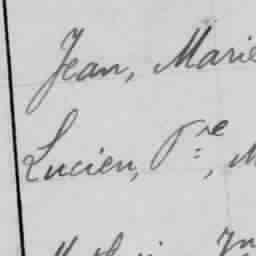 Jean, Marie
Lucien, Pre, M